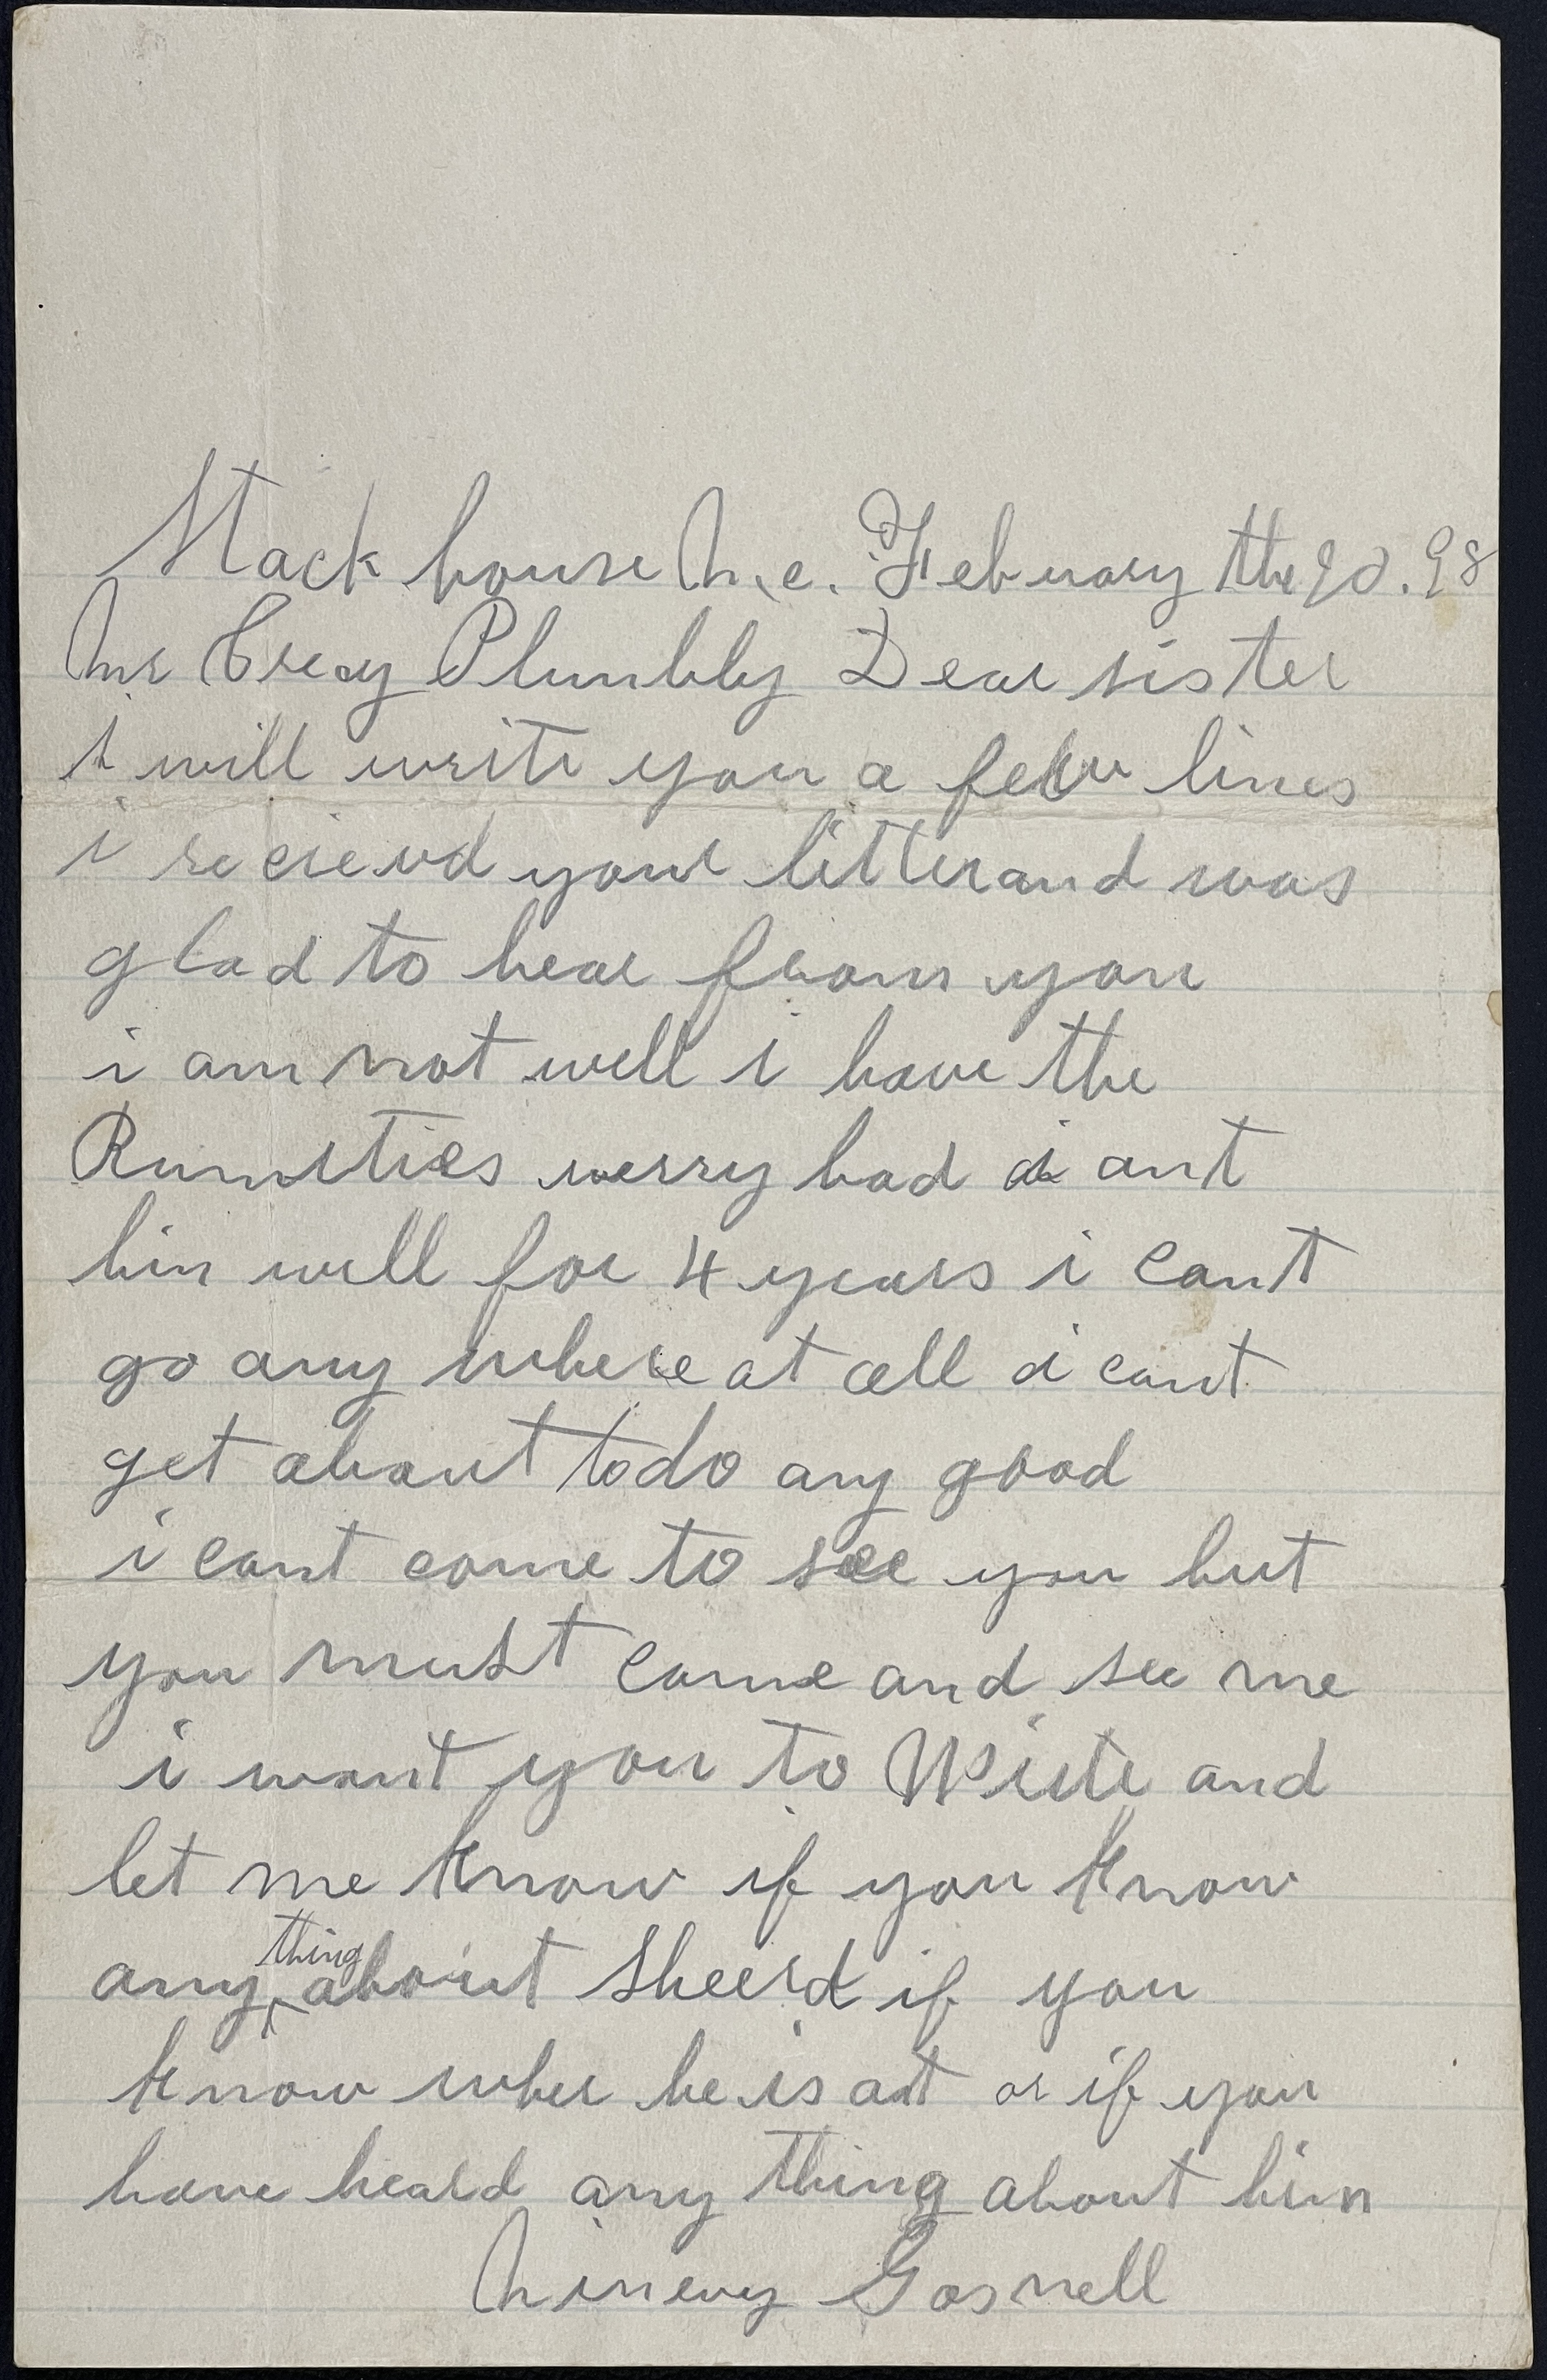 Stack house N.c. Febuary the 20. 98
Mr Creay Plumbly Dear sister
i will write you a few lines
i recievd your litter and was
glad to hear fraom you
i am not well i have the
Rumities verry bad i ant
bin well for 4 years i cant
go any where at all i cant
get about to do any good
i cant come to see you but
you must come and see me
i want you to Write and
let me know if you know
any thing about Sheerd if you
know wher he is at or if you
have heard any thing about him
Ninevy Gosnell